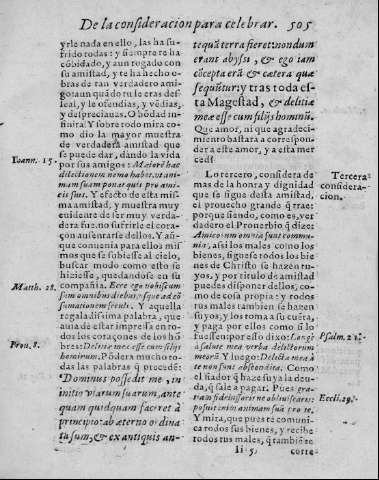 De la consideracion para celebrar. 505
yrle nada en ello, las ha su-
frido todas: y siempre te ha
cõbidado, y aun rogado con
su amistad, y te ha hecho o-
bras de tan verdadero ami-
go: aun quãdo tu le eras des-
leal, y le ofendias, y vẽdias,
y despreciauas. O bõdad in-
finita! Y sobre todo mira co-
mo dio la mayor muestra
de verdadera amistad que
se puede dar, dando la vida
Ioann. 15.
por sus amigos: Maiorẽ hac
dilectionem nemo habet, vt ani-
mam suam ponat quis pro ami-
cis suis. Y efecto de esta mis-
ma amistad, y muestra muy
euidente de ser muy verda-
dera fue. no sufrirle el coraçõ
aun ausentarse dellos. Y aũ-
que conuenia para ellos mis-
mos que se subiesse al cielo,
buscar modo como esto se
hiziesse, quedandose en su
Matth. 28.
compañia. Ecce ego vobiscum
sum omnibus diebus, vsque ad cõ-
sumationem sæculi. Y aquella
regaladissima palabra, que
auia de estar impressa en to-
dos los coraçones de los hõ-
Prou. 8.
bres: Deliciæ meæ esse cum filijs
hominum. Põdera mucho to-
das las palabras q̃ precedẽ:
Dominus possedit me, in
initio viarum suarum, ante
quam quidquam faceret à
principio: ab æterno ordina
ta sum, & ex antiquis an-
tequã terra fieret: nondum
erant abyssi, & ego iam
cõcepta erã & cætera quæ
sequũtur: y tras toda es-
ta Magestad, & delitiæ
meæ esse cum filijs hominũ.
Que amor, ni que agradeci-
miento bastara a correspon-
der a este amor, y a esta mer
ced!
Lo tercero, considera de
Tercera
mas de la honra y dignidad
considera-
que se sigue desta amistad,
cion.
el prouecho grande q̃ trae:
porque siendo, como es, ver
dadero el Prouerbio q̃ dize:
Amicorum omnia sunt commu-
nia, assi los males como los
bienes, siguese todos los bie
nes de Christo se hazen tu-
yos, y por titulo de amistad
puedes disponer dellos, co-
mo de cosa propia: y todos
tus males tambien se hazen
suyos, y los toma a su cuẽta,
y paga por ellos como si lo
Psalm. 21.
fuessen: por esto dixo: Longè
à salute mea verba delictorum
meorũ. Y luego: Delicta mea à
te non sunt abscondita. Como
el fiador q̃ haze suya la deu-
da, q̃ sale a pagar. Pues gra-
Eccli. 29.
tiam fideiussoris ne obliuiscaris:
posuit enim animam suã pro te.
Y mira, que pues te comuni
ca todos sus bienes, y recibe
todos tus males, q̃ tambiẽ te
Ii 5. corre